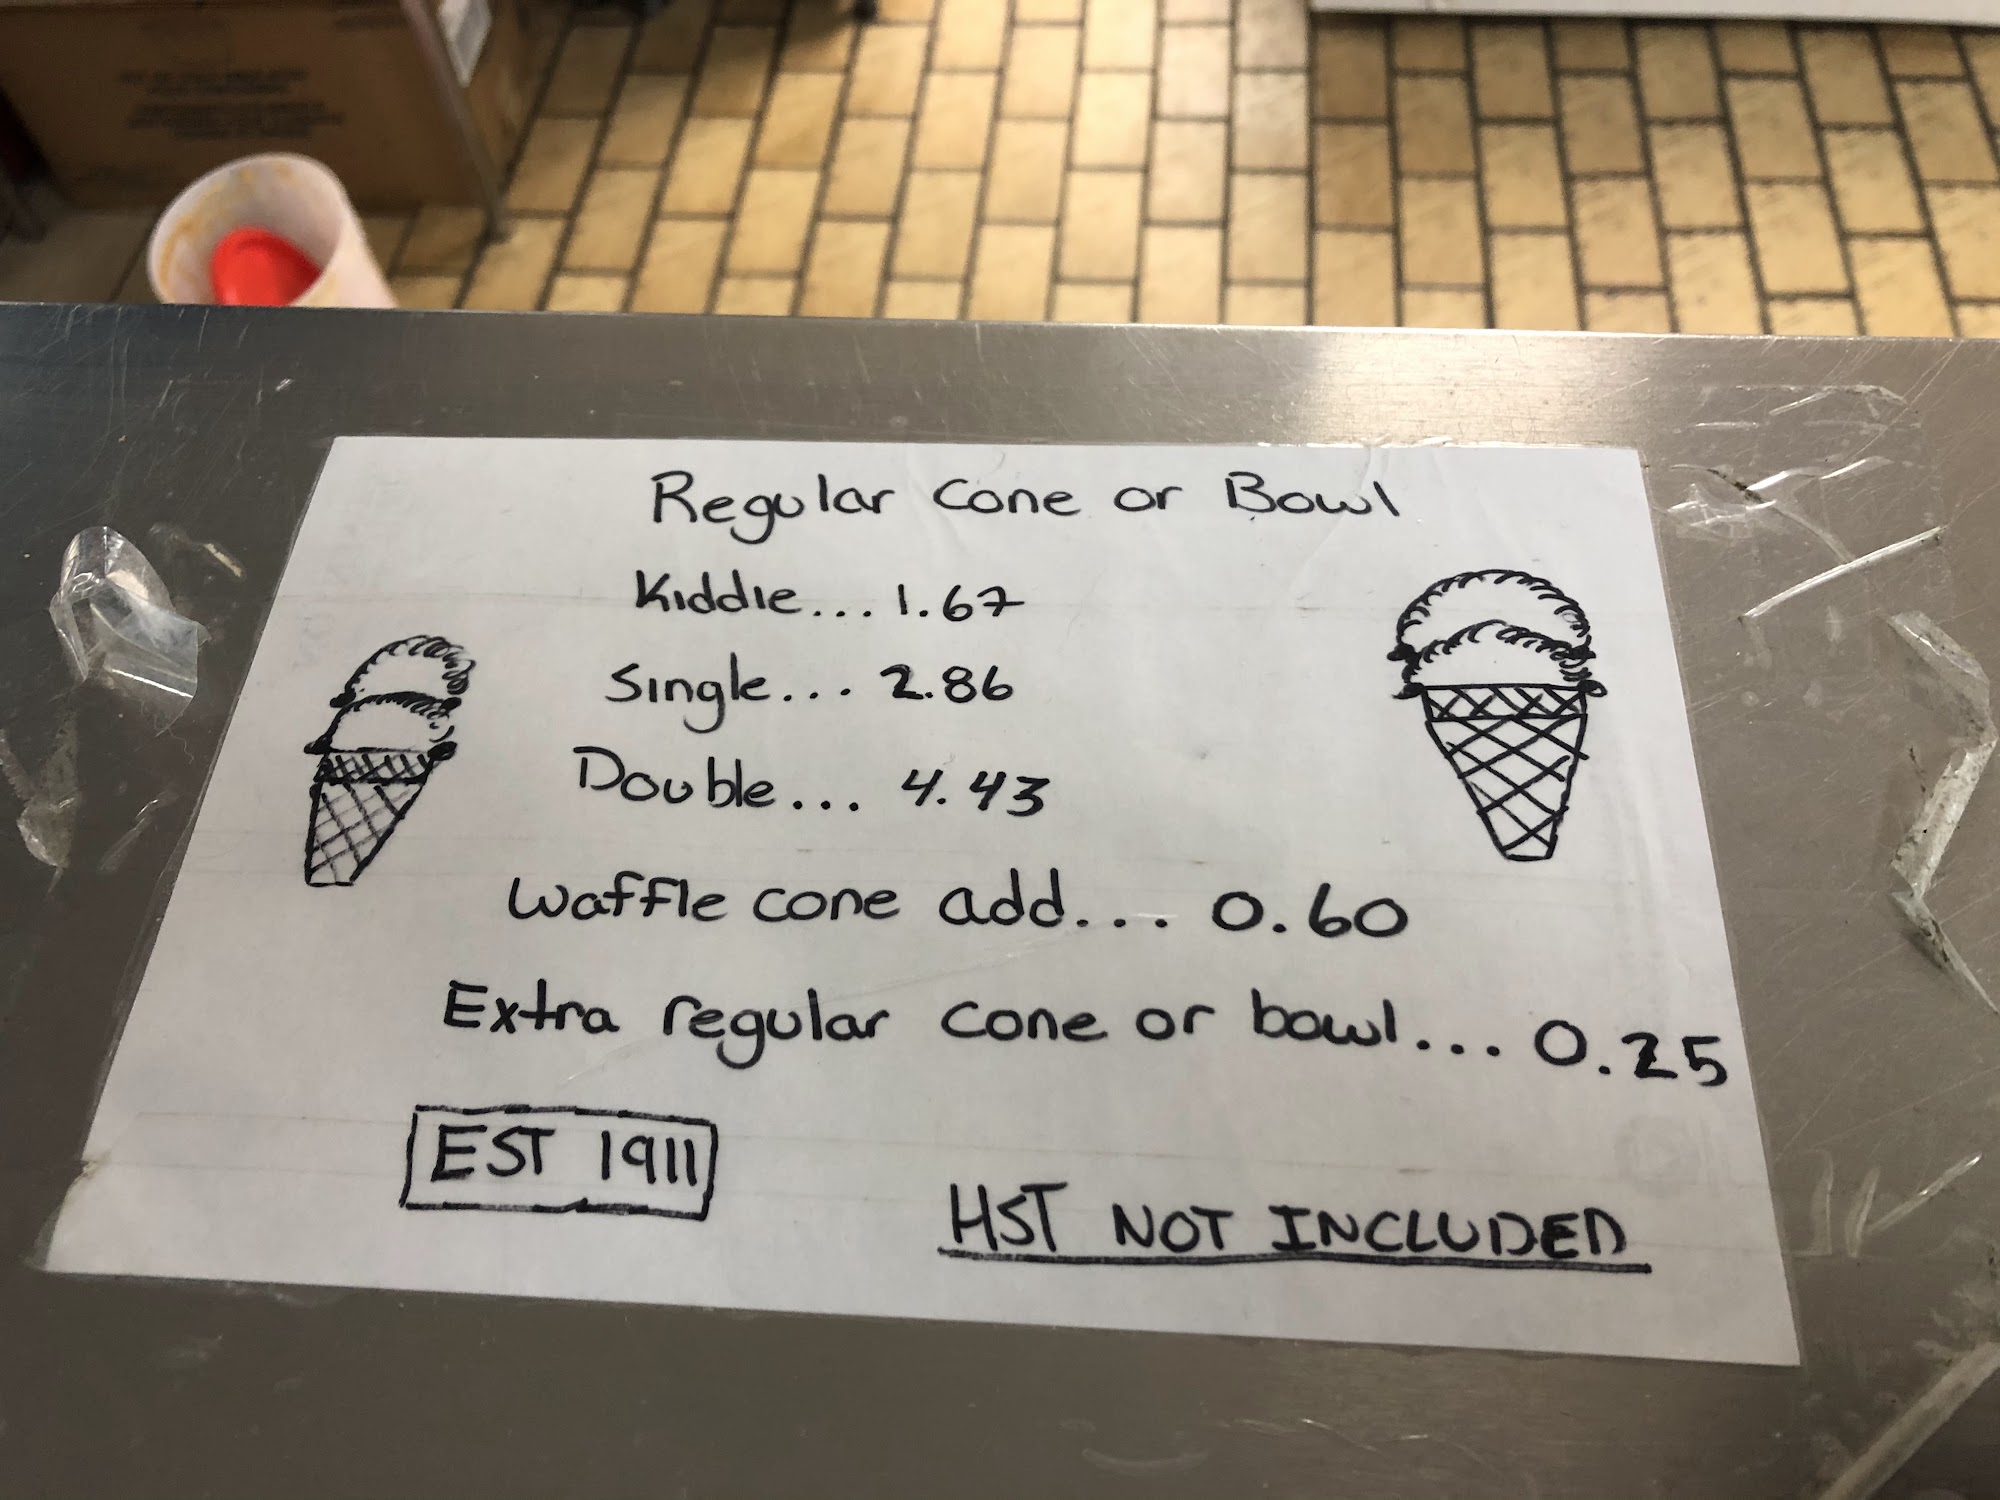 Regular Cone or Bowl
Kiddie... 1.67
Single... 2.86
Double... 4.43
Waffle cone add... 0.60
Extra regular cone or bowl... 0.25
EST 1911
HST NOT INCLUDED